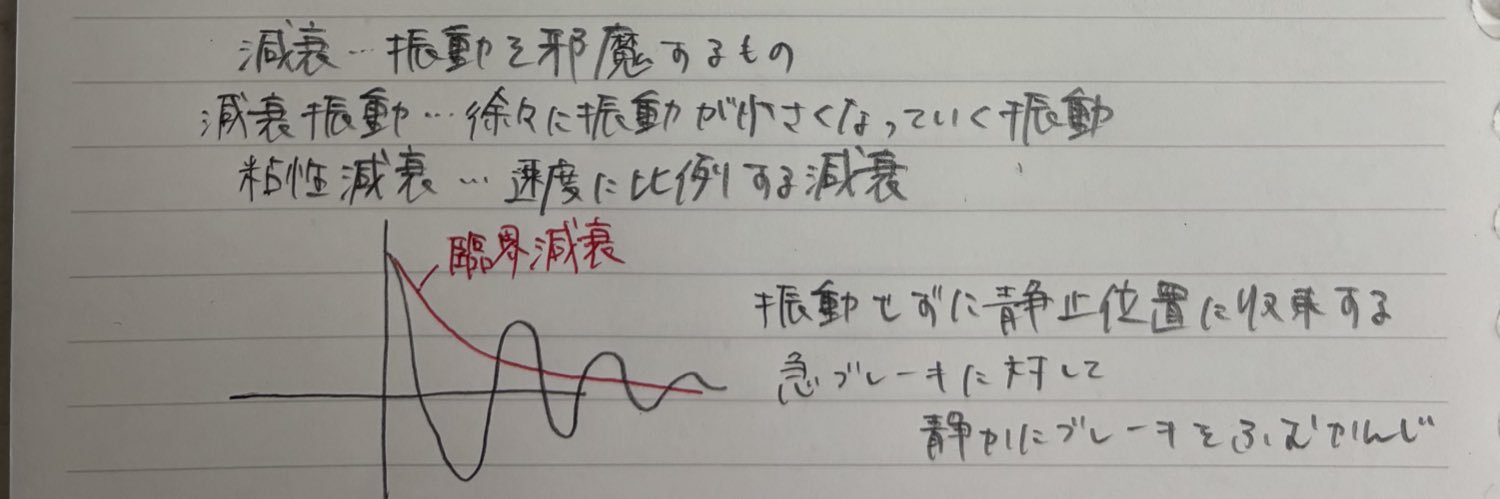 減衰…振動を邪魔するもの
減衰振動…徐々に振動が小さくなっていく振動
粘性減衰…速度に比例する減衰
臨界減衰
振動せずに静止位置に収束する
急ブレーキに対して
静かにブレーキをふむかんじ